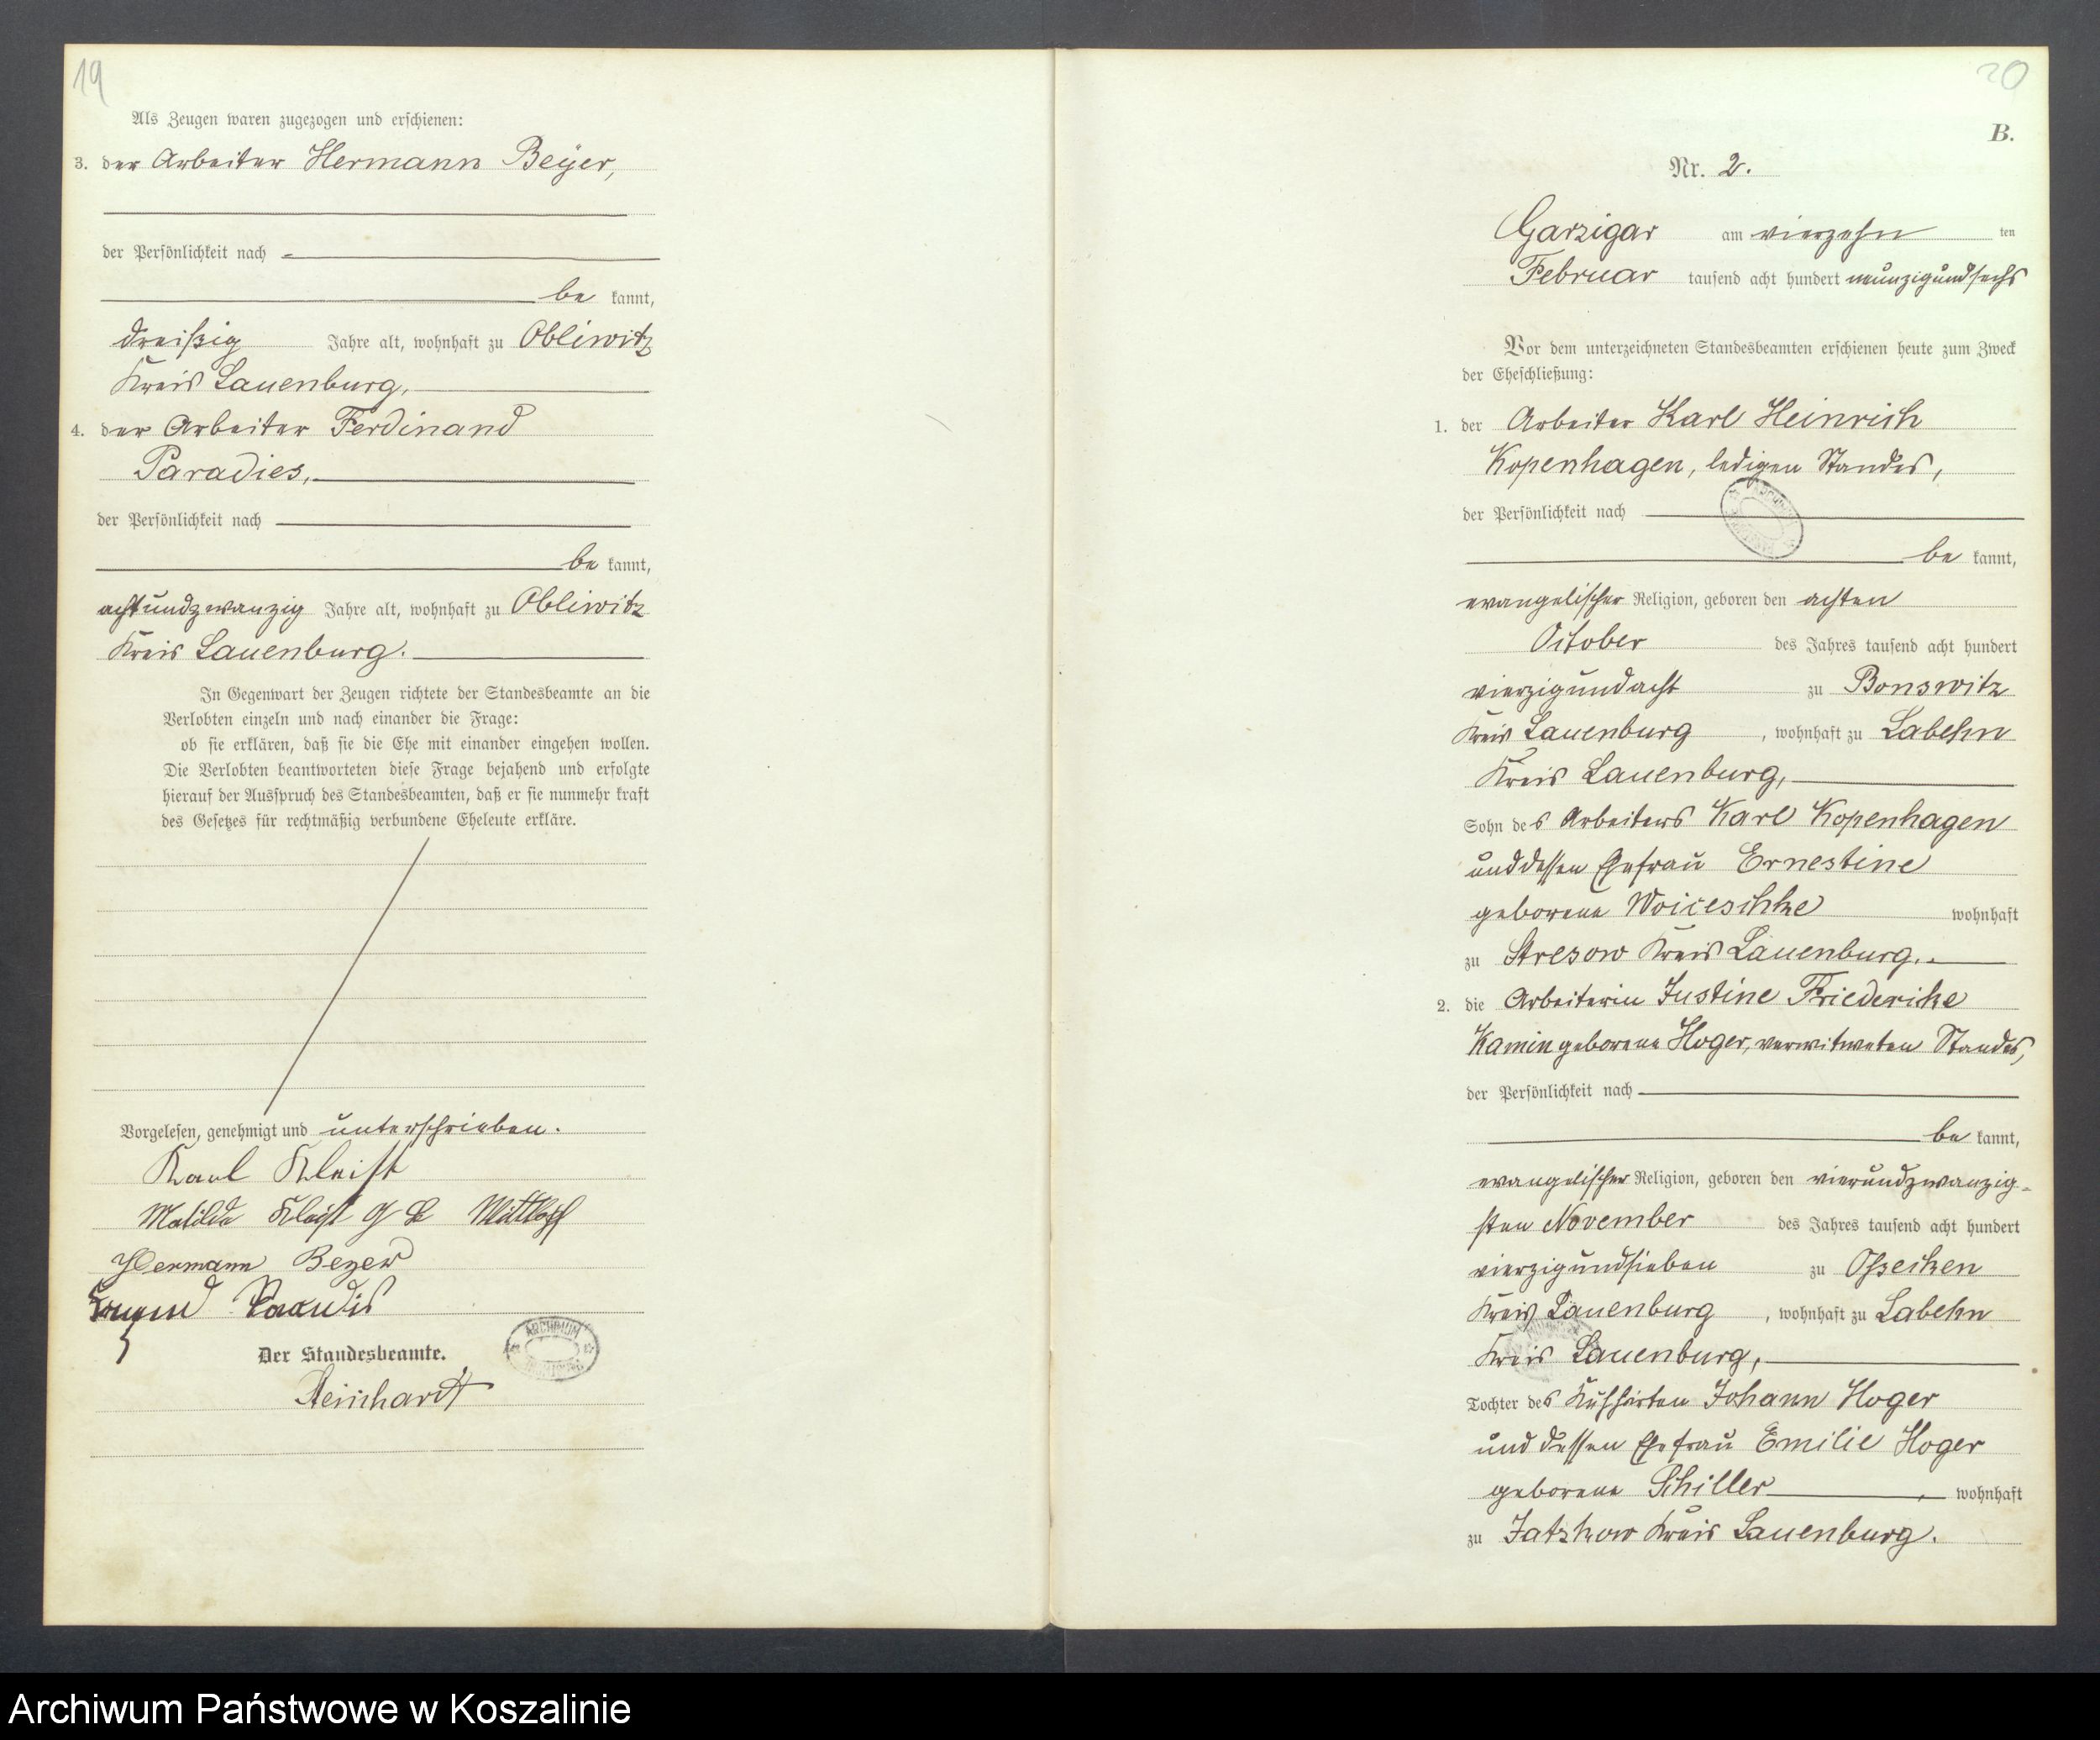 19
Als Zeugen waren zugezogen und erschienen:
3. der Arbeiter Hermann Beyer,
der Persönlichkeit nach
be kannt,
dreißig Jahre alt, wohnhaft zu Obliwitz
Kreis Lauenburg,
4. der Arbeiter Ferdinand
Paradies,
der Persönlichkeit nach
be kannt,
achtundzwanzig Jahre alt, wohnhaft zu Obliwitz
Kreis Lauenburg.
In Gegenwart der Zeugen richtete der Standesbeamte an die
Verlobten einzeln und nach einander die Frage:
ob sie erklären, daß sie die Ehe mit einander eingehen wollen.
Die Verlobten beantworteten diese Frage bejahend und erfolgte
hierauf der Ausspruch des Standesbeamten, daß er sie nunmehr kraft
des Gesetzes für rechtmäßig verbundene Eheleute erkläre.
Vorgelesen, genehmigt und unterschrieben.
Karl Kleist
Matilde Kleist
Hermann Beyer
Der Standesbeamte.
Reinhardt
ARCHIWUM
20
B.
Nr. 2.
Garzigar am vierzehn ten
Februar tausend acht hundert neunzigundsechs
Vor dem unterzeichneten Standesbeamten erschienen heute zum Zweck
der Eheschließung:
1. der Arbeiter Karl Heinrich
Kopenhagen, ledigen Standes,
der Persönlichkeit nach
be kannt,
evangelischer Religion, geboren den achten
October des Jahres tausend acht hundert
vierzigundacht zu Bonswitz
Kreis Lauenburg, wohnhaft zu Labehn
Kreis Lauenburg,
Sohn des Arbeiters Karl Kopenhagen
und dessen Ehefrau Ernestine
geborene Woiceschke wohnhaft
zu Stresow Kreis Lauenburg.
2. die Arbeiterin Justine Friederike
Kamin geborene Hoger, verwitweten Standes,
der Persönlichkeit nach
be kannt,
evangelischer Religion, geboren den vierundzwanzig-
sten November des Jahres tausend acht hundert
vierzigundsieben zu Osseken
Kreis Lauenburg, wohnhaft zu Labehn
Kreis Lauenburg,
Tochter des Kuhhirten Johann Hoger
und dessen Ehefrau Emilie Hoger
geborene Schiller, wohnhaft
zu Jatzkow Kreis Lauenburg.
Archiwum Państwowe w Koszalinie